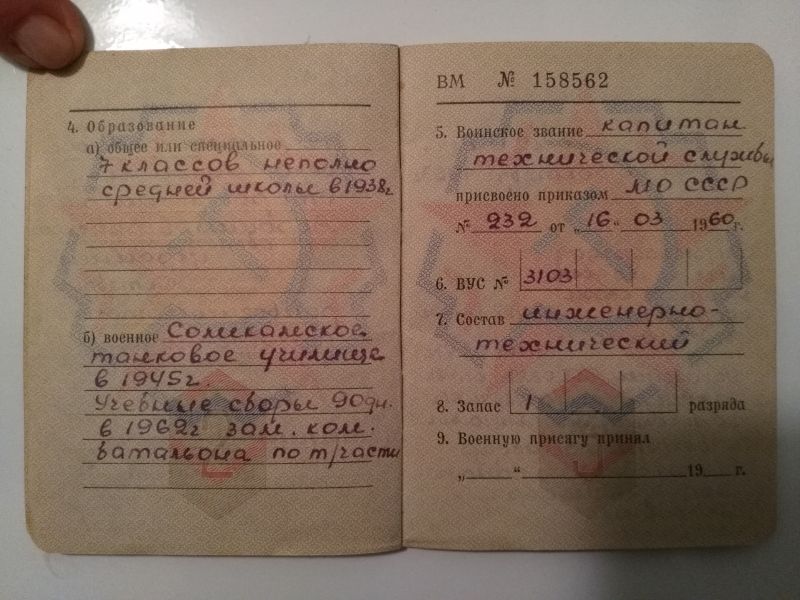 4. Образование
а) общее или специальное
7 классов неполно
средней школы в 1938г
б) военное Соликамское
танковое училище
в 1945г.
Учебные сборы 90дн.
в 1969г зам. ком.
батальона по т/части
ВМ № 158562
5. Воинское звание капитан
технической службы
присвоено приказом МО СССР
№ 232 от „16“ 03 1960г.
6. ВУС № 3103
7. Состав инженерно-
технический
8. Запас 1 разряда
9. Военную присягу принял
„ “ 19 г.